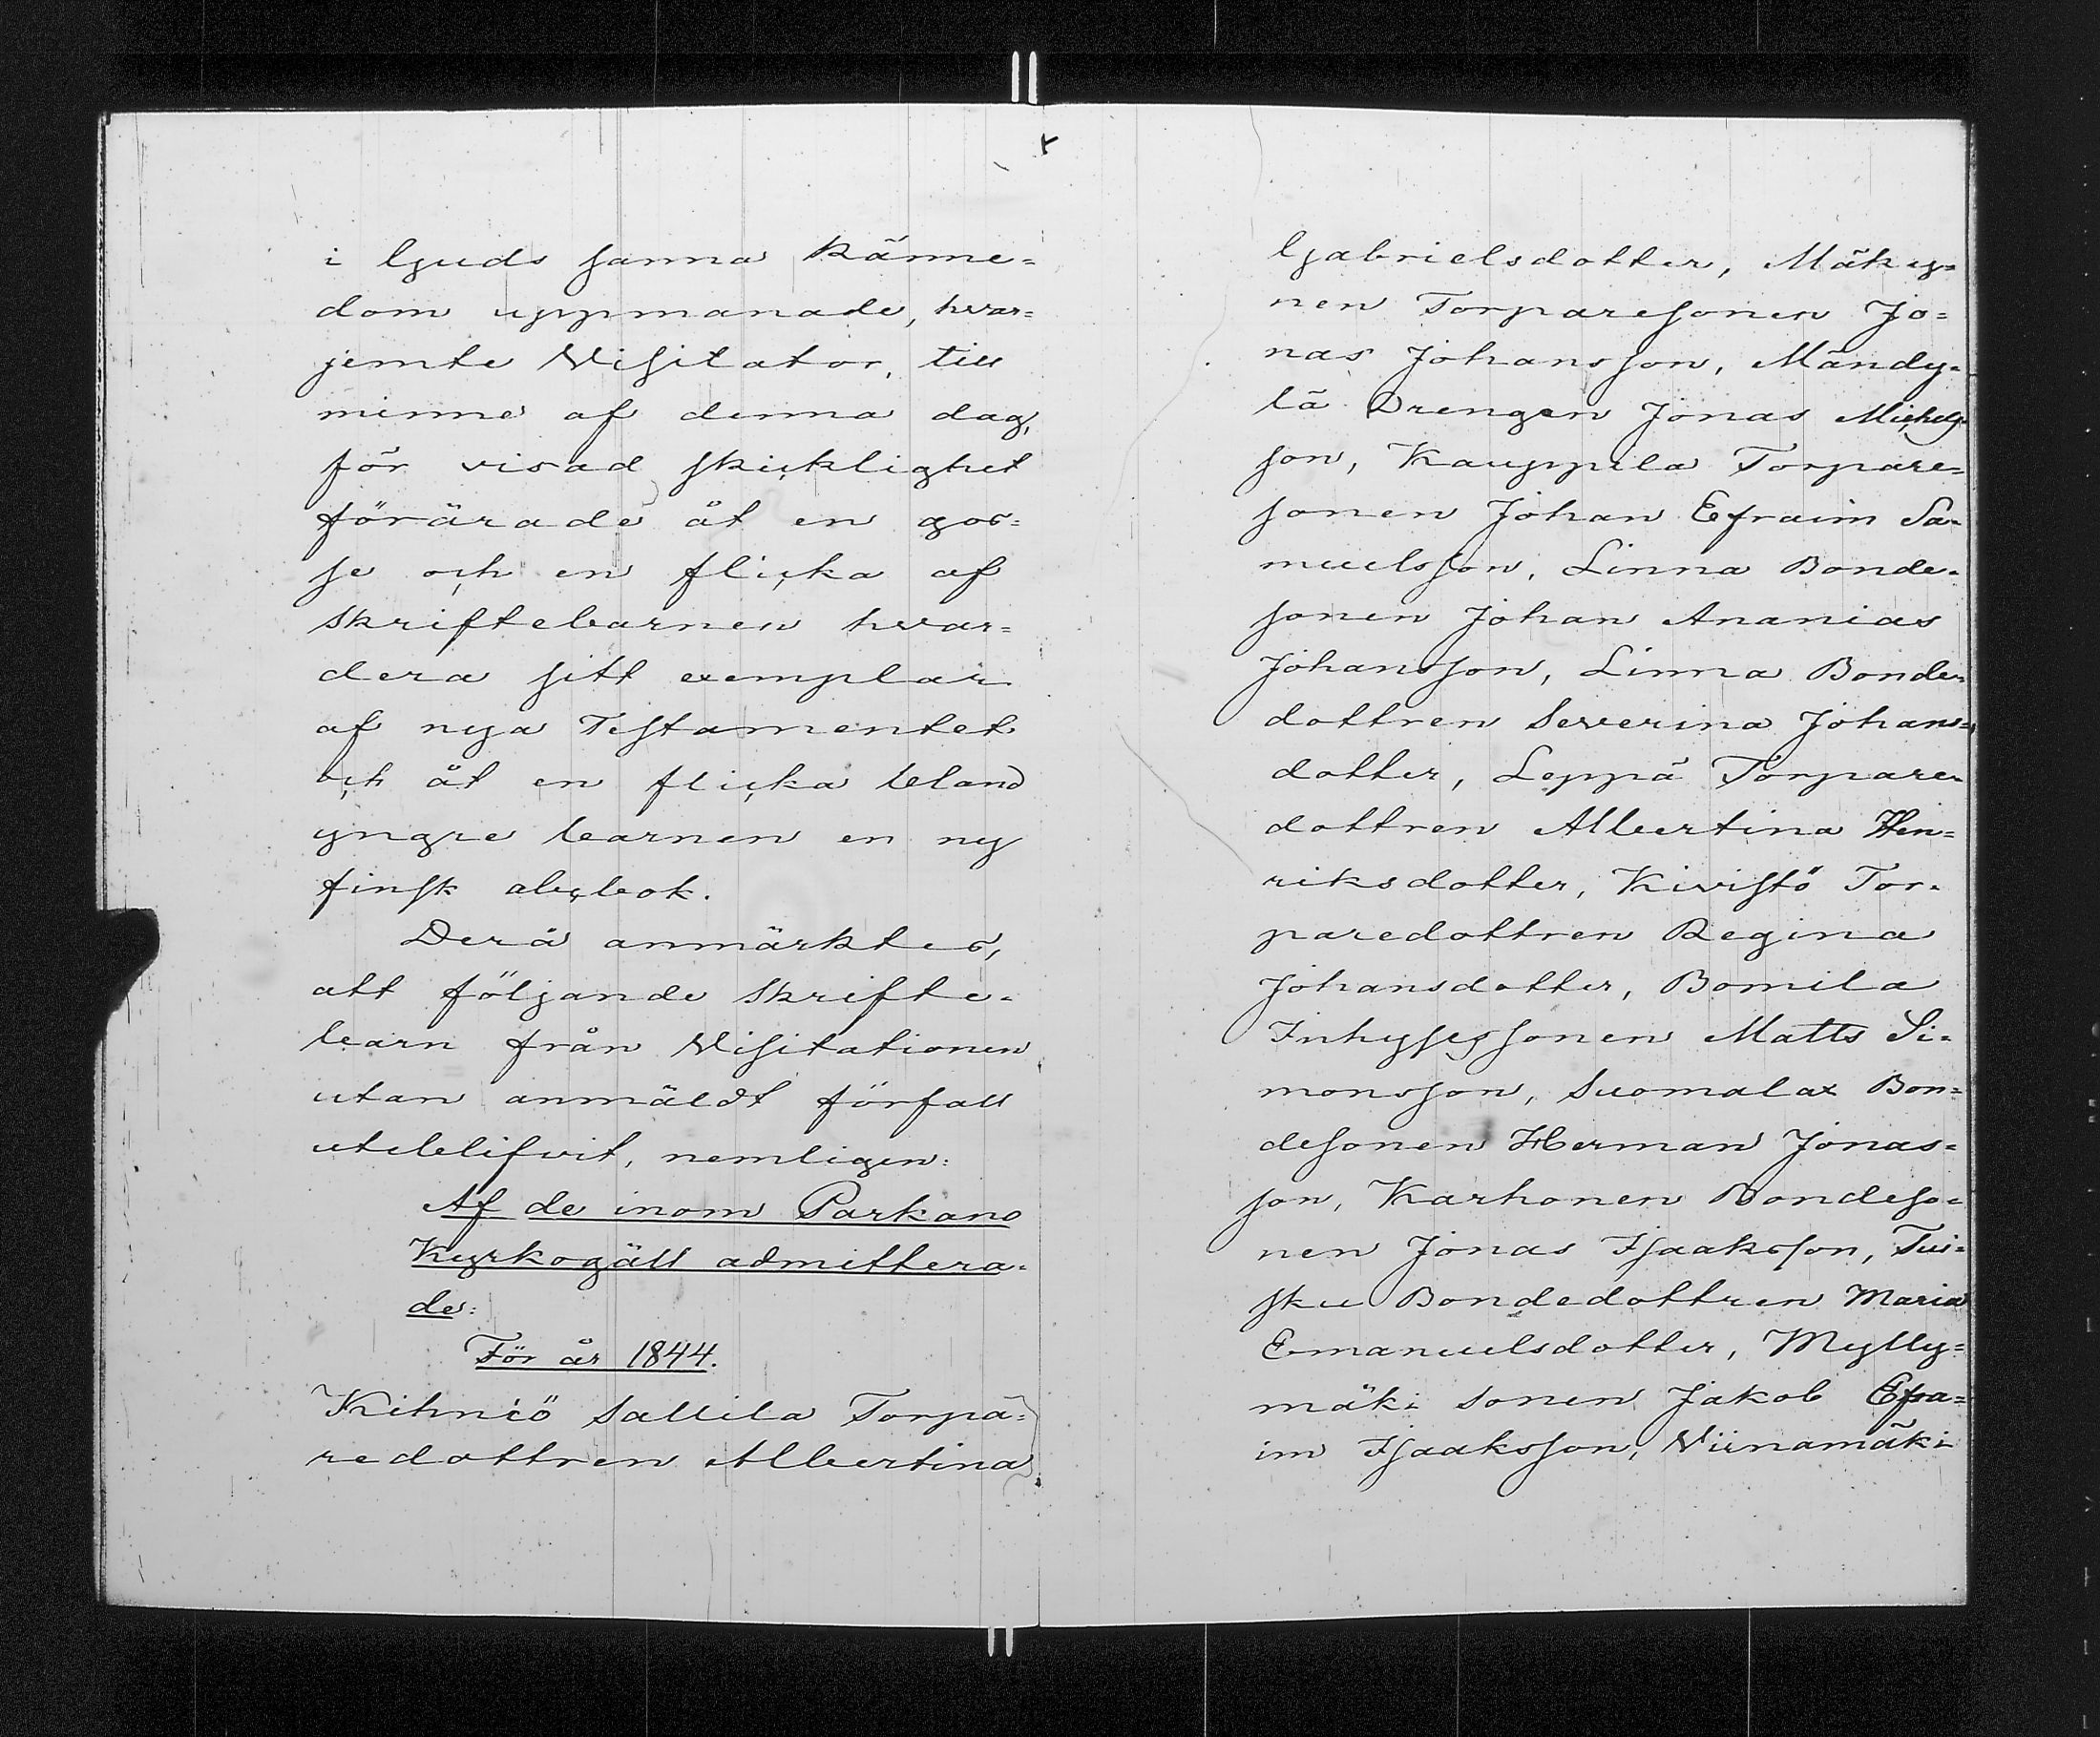 i Guds sanna känne=
dom uppmanade, hvar=
jemte Visitator, till
minne af denna dag,
för visad skicklighet
förärade åt en gos=
se och en flicka af
skriftebarnen hvar=
dera sitt exemplar
af nya Testamentet
och åt en flicka bland
yngre barnen en ny
finsk abcbok.
Derå anmärktes,
att följande skrifte=
barn från Visitationen
utan anmäldt förfall
uteblifvit, nemligen:
Af de inom Parkano
Kyrkogäll admittera=
de:
För år 1844.
Kihniö Sallila Torpa=
redottren Albertina
Gabrielsdotter, Mäky=
nen Torparesonen Jo=
nas Johansson, Mändy=
lä Drengen Jonas Michels=
son, Kauppila Torpare=
sonen Johan Efraim Sa=
muelsson, Linna Bonde=
sonen Johan Ananias
Johansson, Linna Bonde=
dottren Severina Johans=
dotter, Leppä Torpare=
dottren Albertina Hen=
riksdotter, Kivistö Tor=
paredottren Regina
Johansdotter, Bomila
Inhysessonen Matts Si=
monsson, Suomalax Bon=
desonen Herman Jonas=
son, Karhonen Bondeso=
nen Jonas Isaaksson, Tui=
sku Bondedottren Maria
Emanuelsdotter, Mylly=
mäki sonen Jakob Efra=
im Isaaksson, Viinamäki